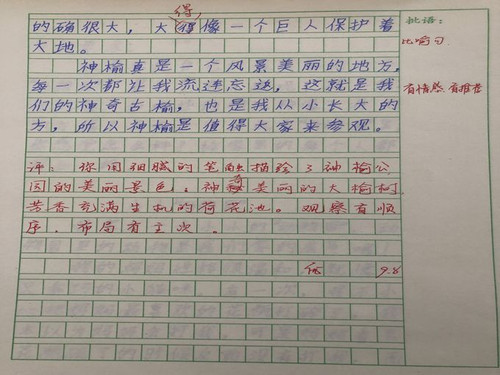 得
的确很大，大得像一个巨人保护着
大地。
神榆真是一个风景美丽的地方，
每一次都让我流连忘返，这就是我
们的神奇古榆，也是我从小长大的
方，所以神榆是值得大家来参观。
评：你用细腻的笔触描绘了神榆公
园的美丽景色：神奇美丽的大榆树，
芳香充满生机的荷花池。观察有顺
序，布局有主次。
9.8
批语：
比喻句
有情感，有推荐